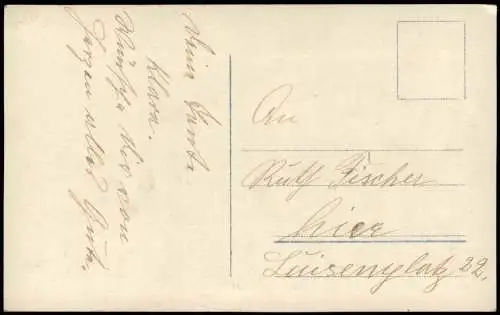 Deine Tante
Klara.
Wünsche dir von
Herzen alles Gute.
An
Ruth Fischer
hier
Luisenplatz 22.